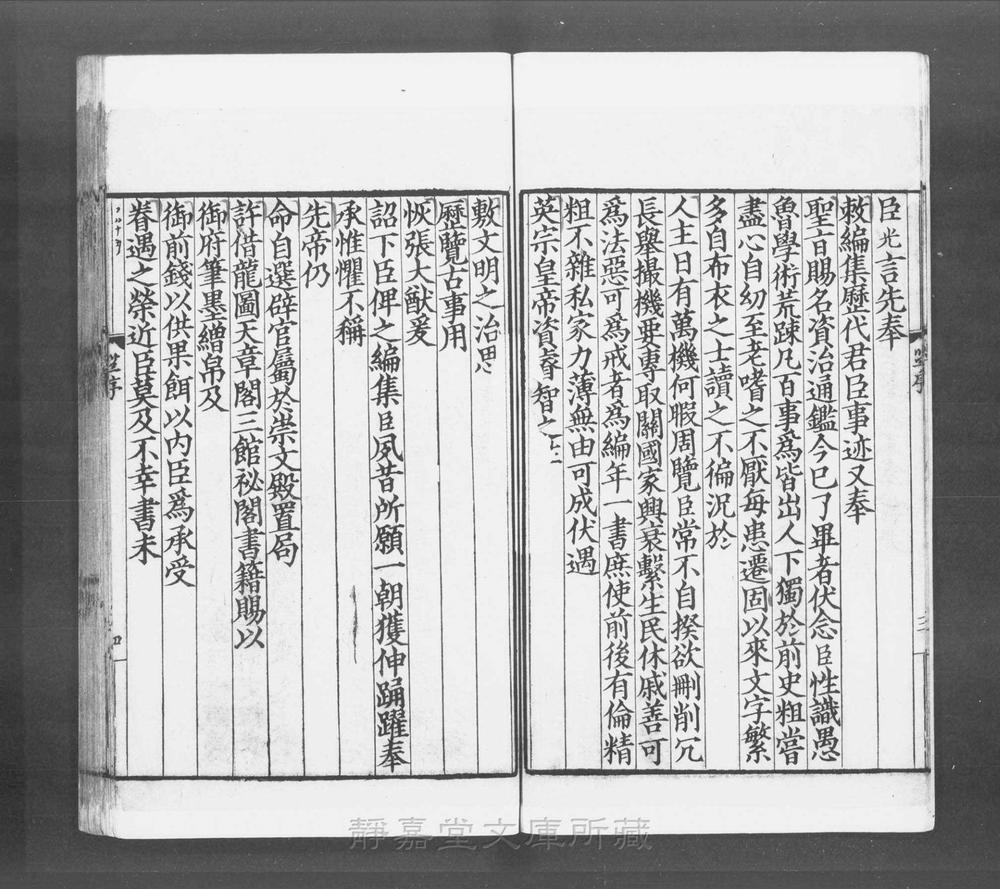 臣光言先奉
敕編集歷代君臣事迹又奉
聖旨賜名資治通鑑今已了畢者伏念臣性識愚
魯學術荒踈凡百事為皆出人下獨於前史粗嘗
盡心自幼至老嗜之不厭每患遷固以來文字繁
多自布衣之士讀之不徧況於
人主日有萬機何暇周覽臣常不自揆欲刪削冗
長舉撮機要專取關國家興衰繫生民休戚善可
為法惡可為戒者為編年一書庶使前後有倫精
粗不雜私家力薄無由可成伏遇
英宗皇帝資睿智之
敷文明之治思
歷覽古事用
恢張大猷爰
詔下臣俾之編集臣夙昔所願一朝獲伸踊躍奉
承惟懼不稱
先帝仍
命自選辟官屬於崇文殿置局
許借龍圖天章閣三館祕閣書籍賜以
御府筆墨繒帛及
御前錢以供果餌以內臣為承受
眷遇之榮近臣莫及不幸書未
靜嘉堂文庫所藏